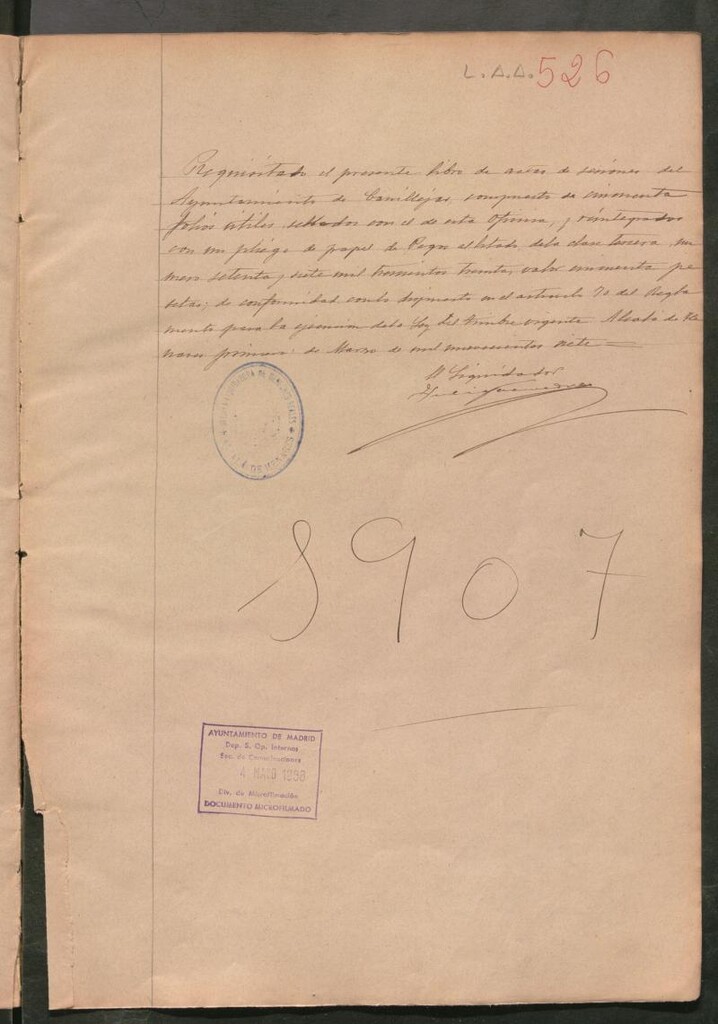 L.A.A. 526
Requisitado el presente libro de actas de sesiones del
Ayuntamiento de Canillejas, compuesto de cincuenta
folios útiles sellados con el de esta Oficina, y reintegrados
con un pliego de papel de Pagos al Estado de la clase tercera, nu
mero setenta y siete mil trescientos treinta, valor cincuenta pe
setas; de conformidad con lo dispuesto en el artículo 70 del Regla
mento para la ejecución de la Ley del Timbre vigente. Alcalá de He
nares primero de Marzo de mil novecientos siete
El Liquidador
1907
AYUNTAMIENTO DE MADRID
Dep. S. Op. Internos
Sec. de Comunicaciones
4 MAYO
Div. de Microfilmación
DOCUMENTO MICROFILMADO